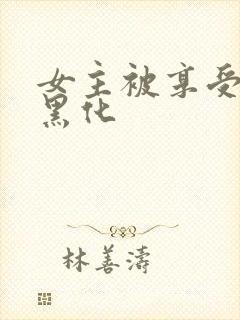 女主被享受
黑化
林善涛